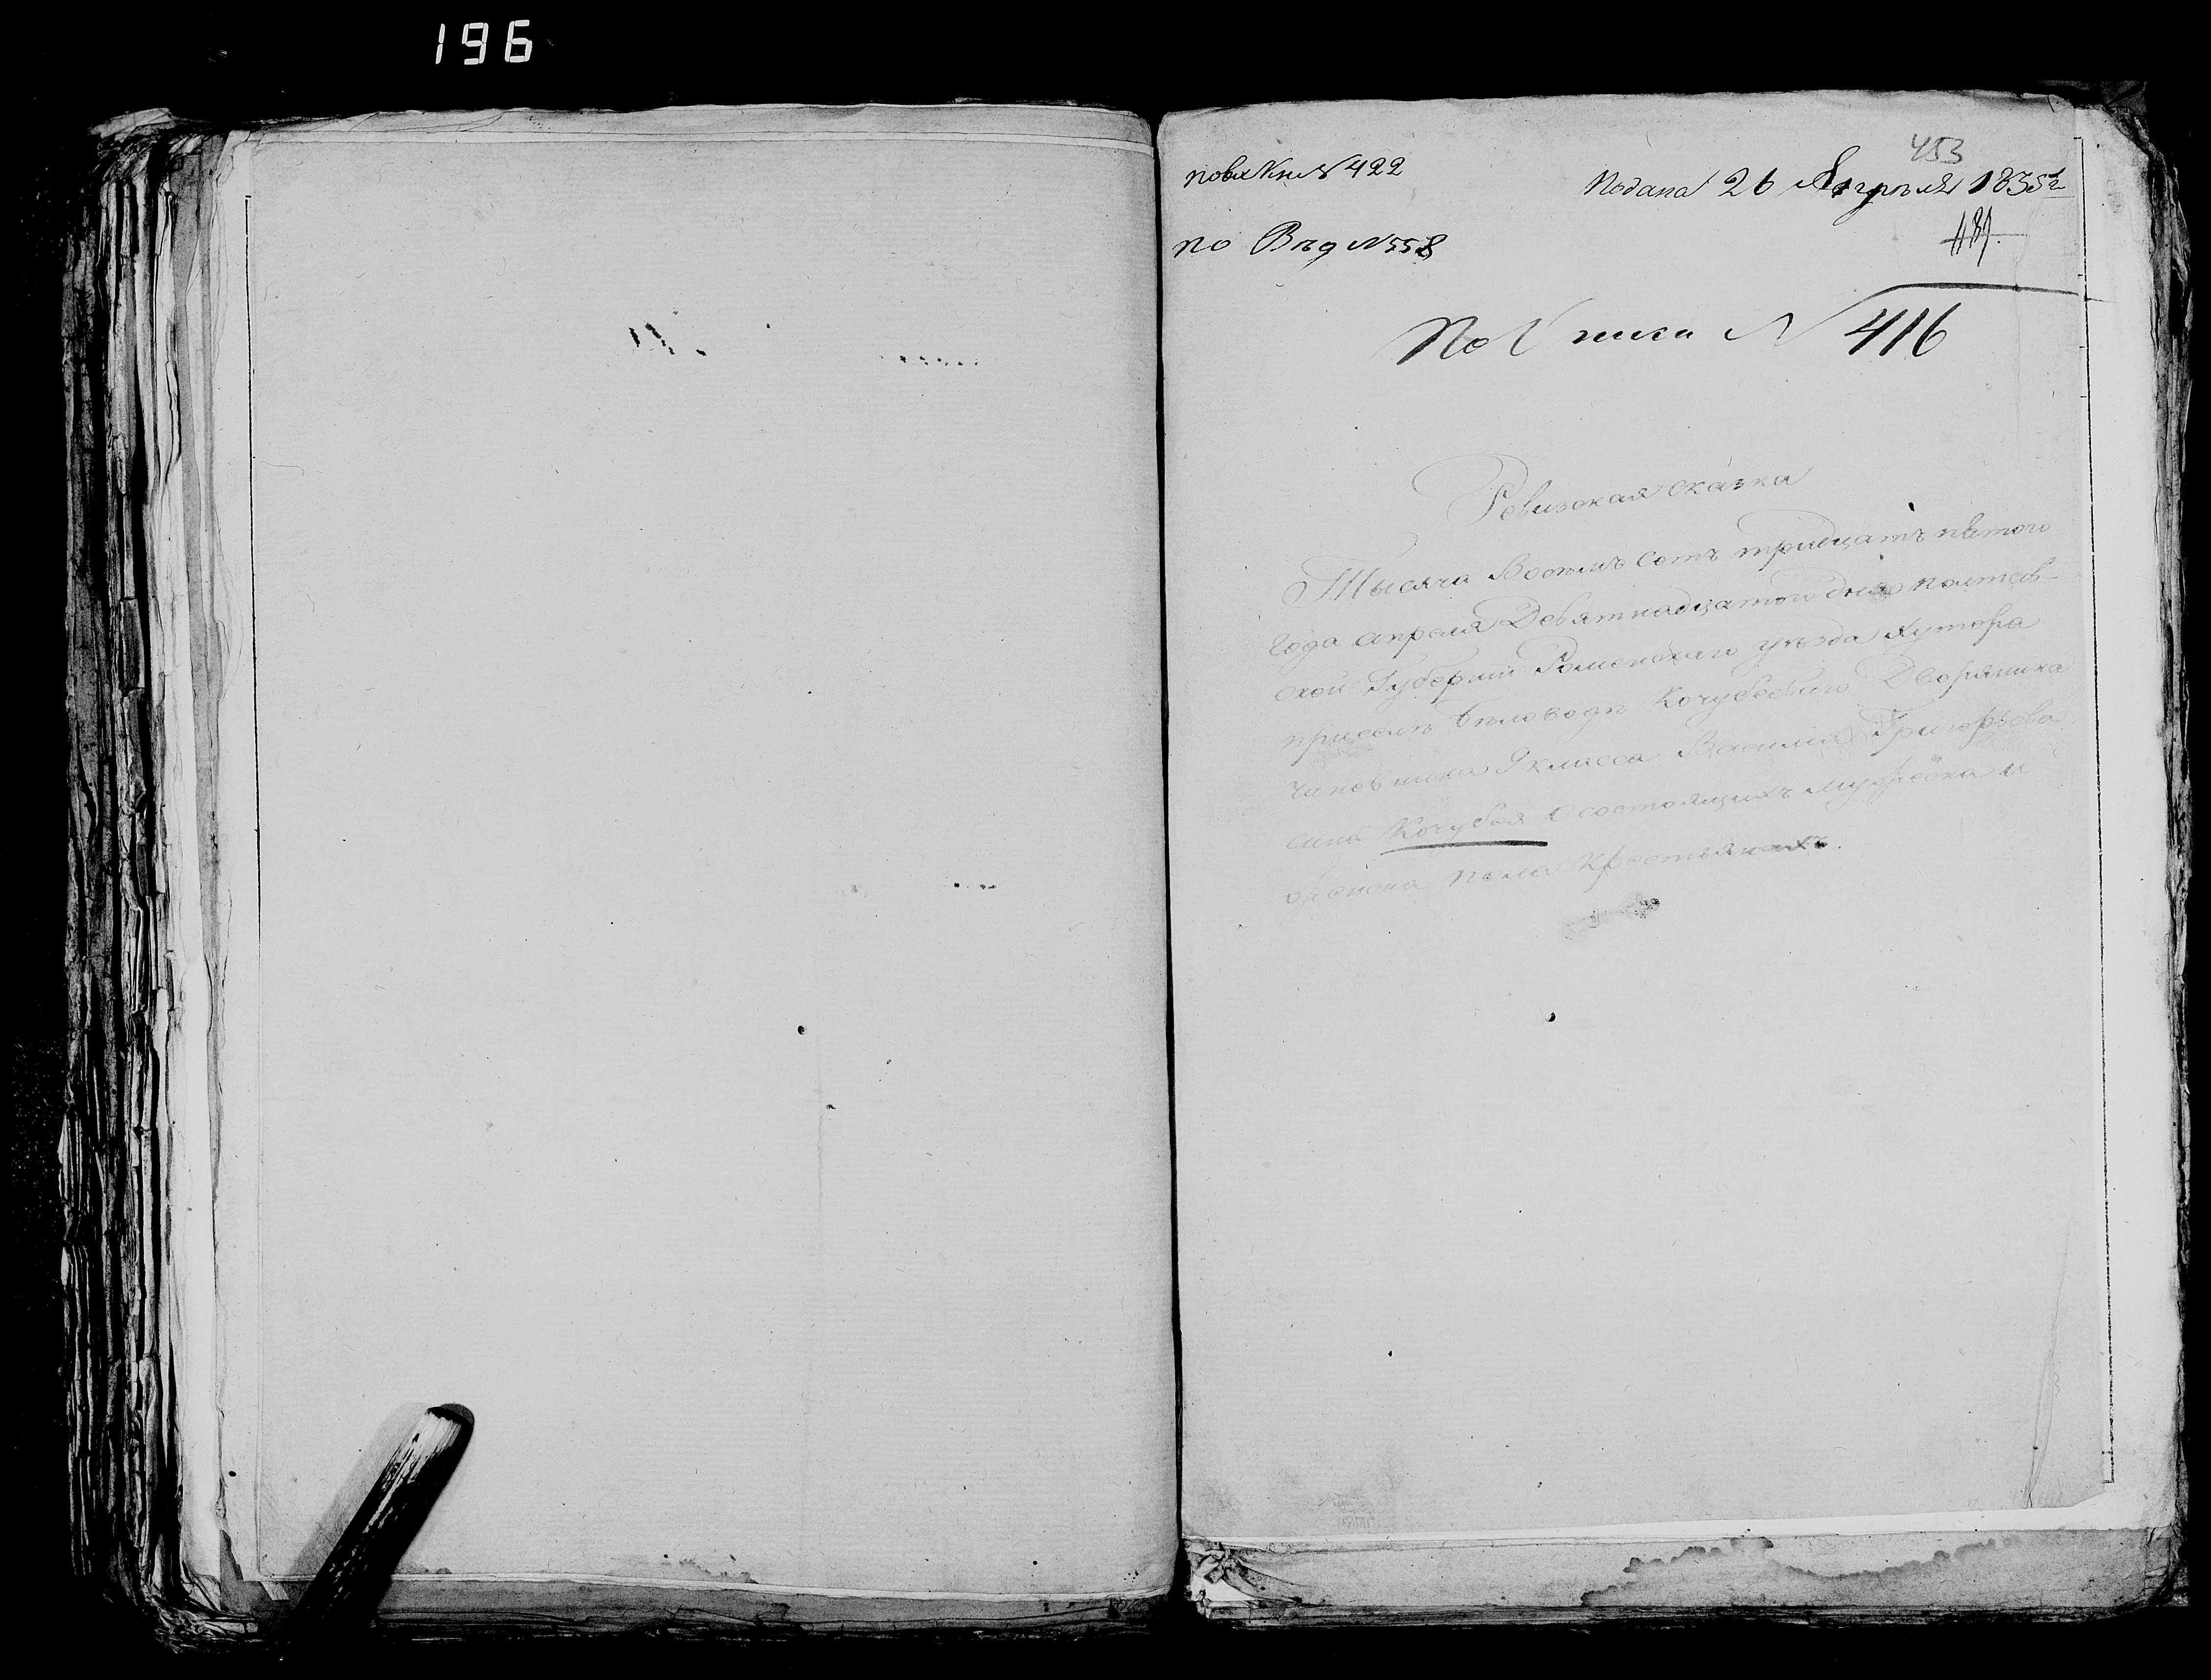 196
453
Подана 26 Апреля 1835 г
по Вед N 558
По книги N 416
Ревизская сказка
Тысяча Восемь сотъ тридцатъ пятого
года апреля Девятнадцатого дня полтав-
ской Губернии Роменскаго уезда Хутора
при селе беловоде Кочубеевого Дворянина
чиновника 9 класса Василия Григорьева
сина Кочубея о состоящихъ мужеска и
женска пола крестьянахъ.